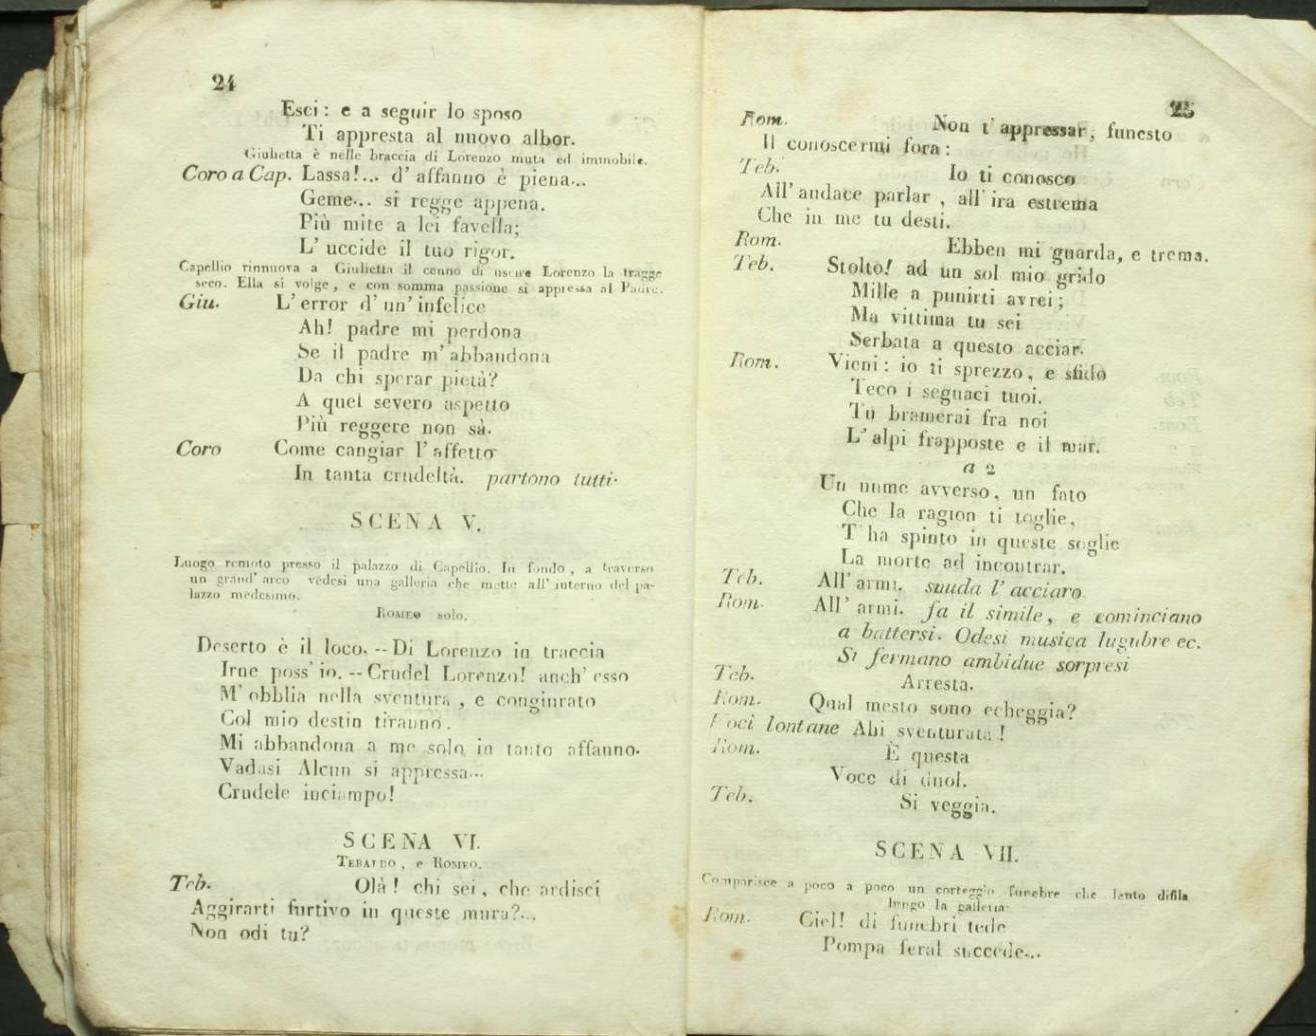 24
Esci: e a seguir lo sposo
Ti appresta al nuovo albor.
Giulietta è nelle braccia di Lorenzo muta ed immobile.
Coro a Cap. Lassa!... d' affanno è piena...
Geme... si regge appena.
Più mite a lei favella;
L' uccide il tuo rigor.
Capellio rinnuova a Giulietta il cenno di uscire Lorenzo la tragge
seco. Ella si volge, e con somma passione si appressa al Padre.
Giu. L' error d' un' infelice
Ah! padre mi perdona
Se il padre m' abbandona
Da chi sperar pietà?
A quel severo aspetto
Più reggere non sà.
Coro Come cangiar l' affetto
In tanta crudeltà. partono tutti.
SCENA V.
Luogo remoto presso il palazzo di Capellio. In fondo, a traverso
un grand' arco vedesi una galleria che mette all' interno del pa-
lazzo medesimo.
ROMEO solo.
Deserto è il loco. -- Di Lorenzo in traccia
Irne poss' io. -- Crudel Lorenzo! anch' esso
M' obblia nella sventura, e congiurato
Col mio destin tiranno.
Mi abbandona a me solo in tanto affanno.
Vadasi Alcun si appressa...
Crudele inciampo!
SCENA VI.
TEBALDO, e ROMEO.
Teb. Olà! chi sei, che ardisci
Aggirarti furtivo in queste mura?...
Non odi tu?
25
Rom. Non t' appressar; funesto
Il conoscermi fora:
Teb. Io ti conosco
All' audace parlar, all' ira estrema
Che in me tu desti.
Rom. Ebben mi guarda, e trema.
Teb. Stolto! ad un sol mio grido
Mille a punirti avrei;
Ma vittima tu sei
Serbata a questo acciar.
Rom. Vieni: io ti sprezzo, e sfido
Teco i seguaci tuoi.
Tu bramerai fra noi
L' alpi frapposte e il mar.
a 2
Un nume avverso, un fato
Che la ragion ti toglie,
T' ha spinto in queste soglie
La morte ad incontrar.
Teb. All' armi. snuda l' acciaro
Rom. All' armi. fa il simile, e cominciano
a battersi. Odesi musica lugubre ec.
Si fermano ambidue sorpresi
Teb. Arresta.
Rom. Qual mesto sono echeggia?
Voci lontane Ahi sventurata!
Rom. È questa
Voce di duol.
Teb. Si veggia.
SCENA VII.
Comparisce a poco a poco un corteggio funebre che lento difila
lungo la galleria.
Rom. Ciel! di funebri tede
Pompa feral succede...